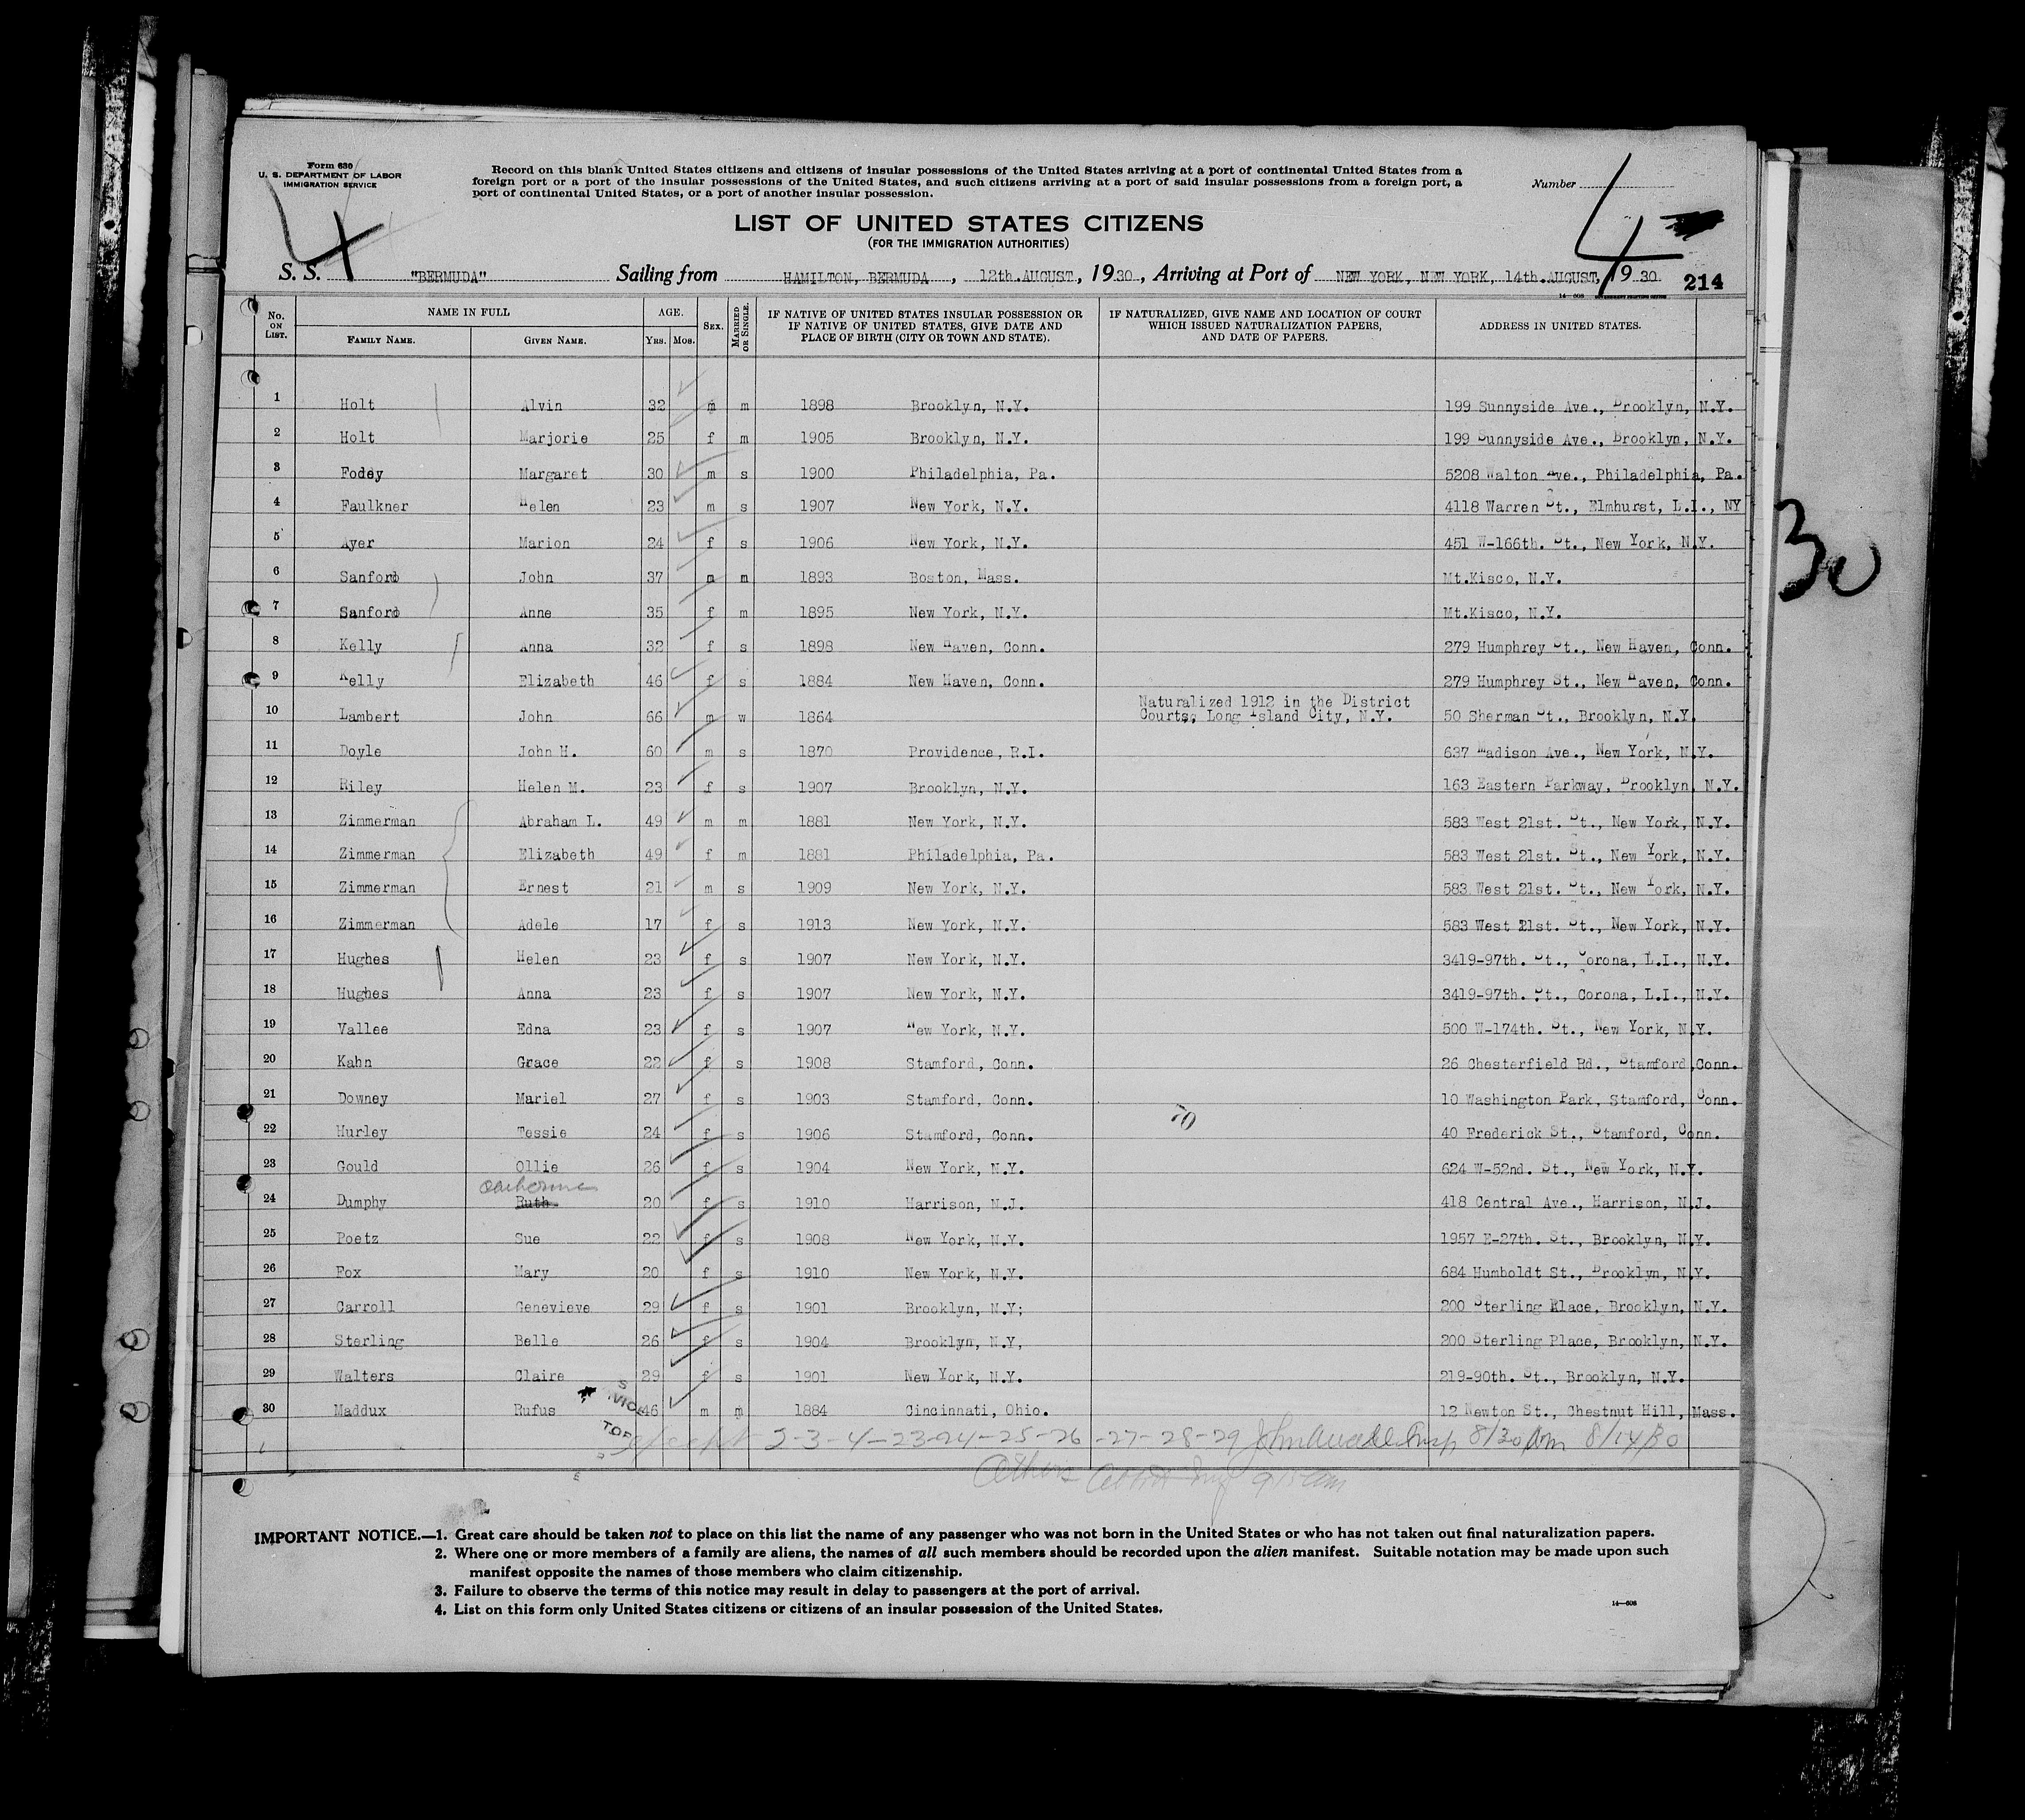 Form 630
U. S. DEPARTMENT OF LABOR
IMMIGRATION SERVICE
Record on this blank United States citizens and citizens of insular possessions of the United States arriving at a port of continental United States from a
foreign port or a port of the insular possessions of the United States, and such citizens arriving at a port of said insular possessions from a foreign port, a
port of continental United States, or a port of another insular possession.
Number
4
4
LIST OF UNITED STATES CITIZENS
(FOR THE IMMIGRATION AUTHORITIES)
S. S. "BERMUDA" Sailing from HAMILTON, BERMUDA, 12th.AUGUST, 1930, Arriving at Port of NEW YORK, NEW YORK, 14th.AUGUST, 1930 214
14—608 GOVERNMENT PRINTING OFFICE
No. ON LIST. NAME IN FULL AGE. SEX. MARRIED OR SINGLE. IF NATIVE OF UNITED STATES INSULAR POSSESSION OR IF NATIVE OF UNITED STATES, GIVE DATE AND PLACE OF BIRTH (CITY OR TOWN AND STATE). IF NATURALIZED, GIVE NAME AND LOCATION OF COURT WHICH ISSUED NATURALIZATION PAPERS, AND DATE OF PAPERS. ADDRESS IN UNITED STATES.
FAMILY NAME. GIVEN NAME. YRS. MOS.
1 Holt Alvin 32 m m 1898 Brooklyn, N.Y. 199 Sunnyside Ave., Brooklyn, N.Y.
2 Holt Marjorie 25 f m 1905 Brooklyn, N.Y. 199 Sunnyside Ave., Brooklyn, N.Y.
3 Fodey Margaret 30 m s 1900 Philadelphia, Pa. 5208 Walton Ave., Philadelphia, Pa.
4 Faulkner Helen 23 m s 1907 New York, N.Y. 4118 Warren St., Elmhurst, L.I., NY
5 Ayer Marion 24 f s 1906 New York, N.Y. 451 W-166th. St., New York, N.Y.
6 Sanford John 37 m m 1893 Boston, Mass. Mt.Kisco, N.Y.
7 Sanford Anne 35 f m 1895 New York, N.Y. Mt.Kisco, N.Y.
8 Kelly Anna 32 f s 1898 New Haven, Conn. 279 Humphrey St., New Haven, Conn.
9 Kelly Elizabeth 46 f s 1884 New Haven, Conn. 279 Humphrey St., New Haven, Conn.
10 Lambert John 66 m w 1864 Naturalized 1912 in the District Courts, Long Island City, N.Y. 50 Sherman St., Brooklyn, N.Y.
11 Doyle John H. 60 m s 1870 Providence, R.I. 637 Madison Ave., New York, N.Y.
12 Riley Helen M. 23 f s 1907 Brooklyn, N.Y. 163 Eastern Parkway, Brooklyn, N.Y.
13 Zimmerman Abraham L. 49 m m 1881 New York, N.Y. 583 West 21st. St., New York, N.Y.
14 Zimmerman Elizabeth 49 f m 1881 Philadelphia, Pa. 583 West 21st. St., New York, N.Y.
15 Zimmerman Ernest 21 m s 1909 New York, N.Y. 583 West 21st. St., New York, N.Y.
16 Zimmerman Adele 17 f s 1913 New York, N.Y. 583 West 21st. St., New York, N.Y.
17 Hughes Helen 23 f s 1907 New York, N.Y. 3419-97th. St., Corona, L.I., N.Y.
18 Hughes Anna 23 f s 1907 New York, N.Y. 3419-97th. St., Corona, L.I., N.Y.
19 Vallee Edna 23 f s 1907 New York, N.Y. 500 W-174th. St., New York, N.Y.
20 Kahn Grace 22 f s 1908 Stamford, Conn. 26 Chesterfield Rd., Stamford, Conn.
21 Downey Mariel 27 f s 1903 Stamford, Conn. 10 Washington Park, Stamford, Conn.
22 Hurley Tessie 24 f s 1906 Stamford, Conn. 40 Frederick St., Stamford, Conn.
23 Gould Ollie 26 f s 1904 New York, N.Y. 624 W-52nd. St., New York, N.Y.
24 Dumphy Ruth 20 f s 1910 Harrison, N.J. 418 Central Ave., Harrison, N.J.
25 Poetz Sue 22 f s 1908 New York, N.Y. 1957 E-27th. St., Brooklyn, N.Y.
26 Fox Mary 20 f s 1910 New York, N.Y. 684 Humboldt St., Brooklyn, N.Y.
27 Carroll Genevieve 29 f s 1901 Brooklyn, N.Y; 200 Sterling Place, Brooklyn, N.Y.
28 Sterling Belle 26 f s 1904 Brooklyn, N.Y, 200 Sterling Place, Brooklyn, N.Y.
29 Walters Claire 29 f s 1901 New York, N.Y. 219-90th. St., Brooklyn, N.Y.
30 Maddux Rufus 46 m m 1884 Cincinnati, Ohio. 12 Newton St., Chestnut Hill, Mass.
except 2-3-4-23-24-25-26-27-28-29 8/30 am 8/14/30
Others 915 am
IMPORTANT NOTICE.—1. Great care should be taken not to place on this list the name of any passenger who was not born in the United States or who has not taken out final naturalization papers.
2. Where one or more members of a family are aliens, the names of all such members should be recorded upon the alien manifest. Suitable notation may be made upon such
manifest opposite the names of those members who claim citizenship.
3. Failure to observe the terms of this notice may result in delay to passengers at the port of arrival.
4. List on this form only United States citizens or citizens of an insular possession of the United States.
14—608
30